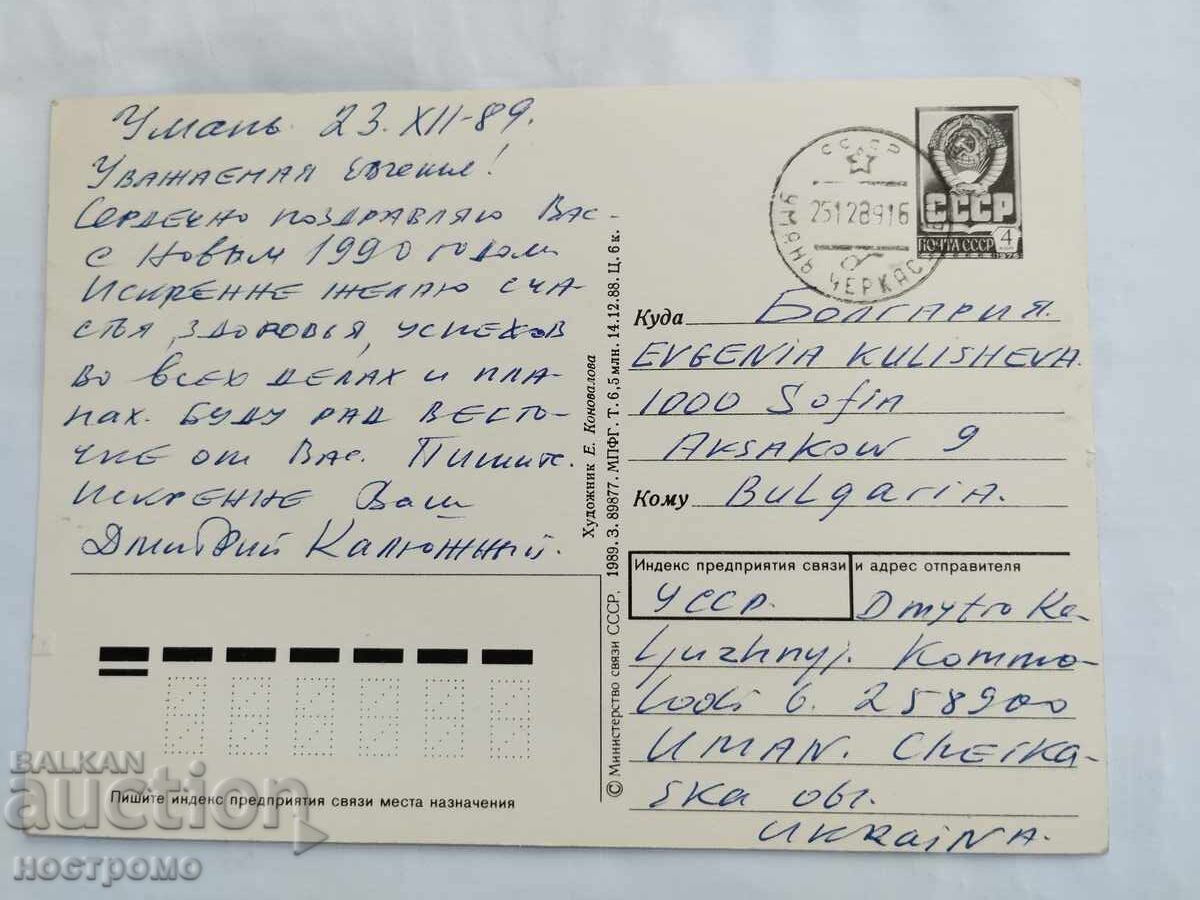 Умань 23.XII-89.
Уважаемая Евгения!
Сердечно поздравляю Вас
с Новым 1990 годом
Искренне желаю сча-
стья, здоровья, успехов
во всех делах и пла-
нах. Буду рад весто-
чке от Вас. Пишите.
Искренне Ваш
Дмитрий Калюжный.
Пишите индекс предприятия связи места назначения
© Министерство связи СССР, 1989. З. 89877. МПФГ. Т. 6,5 млн. 14.12.88. Ц. 6 к.
Художник Е. Коновалова
СССР
25128916
УМАНЬ ЧЕРКАС
СССР
ПОЧТА СССР 4
1976
Куда Болгария.
EVGENIA KULISHEVA.
1000 Sofia
AKSAKOW 9
Кому Bulgaria.
Индекс предприятия связи и адрес отправителя
УССР. Dmytro Ka-
ljuzhnyj. Kommo-
Lodi 6. 258900
UMAN. Cherka-
ska obl.
UKRAINA.
BALKAN
auction
ностромо